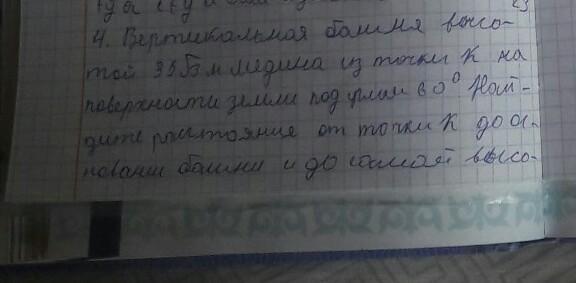 4. Вертикальная башня высо-
той 35√3 м видна из точки К на
поверхности земли под углом 60° Най-
дите расстояние от точки К до ос-
нования башни и до самой высо-